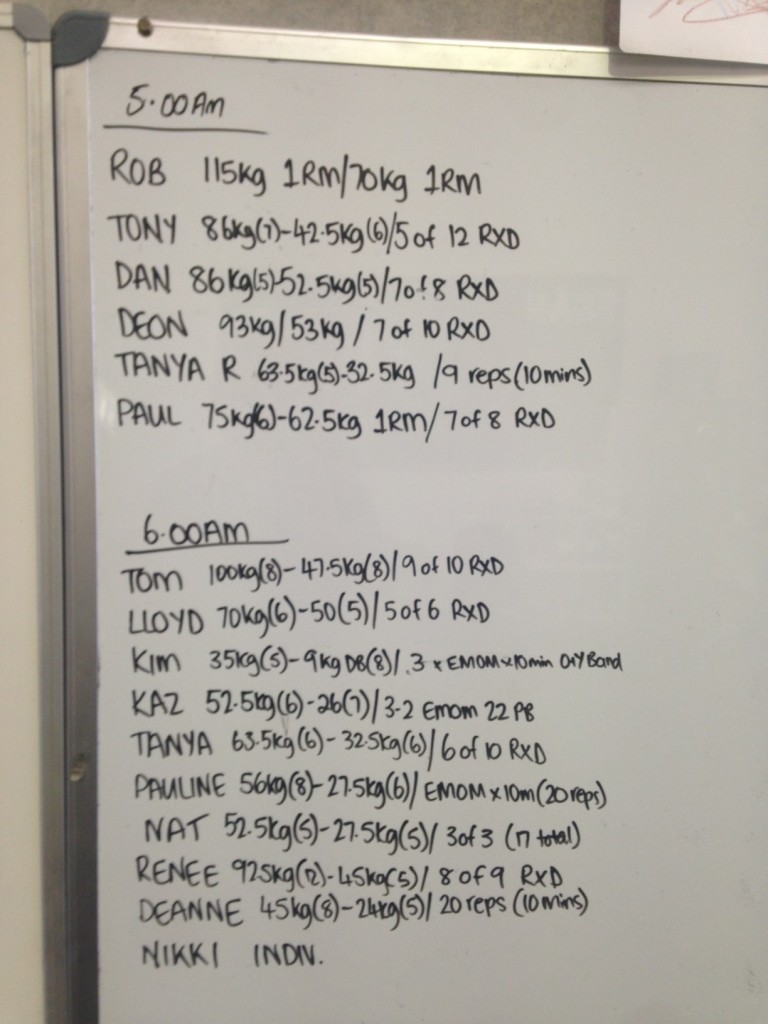 5.00AM
ROB 115kg 1RM/70kg 1RM
TONY 86kg(7)-42.5kg(6)/5 of 12 RXD
DAN 86kg(5)-52.5kg(5)/7 of 8 RXD
DEON 93kg/53kg / 7 of 10 RXD
TANYA R 63.5kg(5)-32.5kg /9 reps (10mins)
PAUL 75kg(6)-62.5kg 1RM/ 7 of 8 RXD
6.00AM
TOM 100kg(8)-47.5kg(8)/9 of 10 RXD
LLOYD 70kg(6)-50(5)/5 of 6 RXD
KIM 35kg(5)-9kg DB(8)/.3 x EMOM x 10min Band
KAZ 52.5kg(6)-26(7)/3-2 Emom 22 PB
TANYA 63.5kg(6)-32.5kg(6)/6 of 10 RXD
PAULINE 56kg(8)-27.5kg(6)/ EMOM x 10m (20 reps)
NAT 52.5kg(5)-27.5kg(5)/ 3 of 3 (17 total)
RENEE 92.5kg(2)-45kg(5)/ 8 of 9 RXD
DEANNE 45kg(8)-24kg(5)/ 20 reps (10 mins)
NIKKI INDIV.